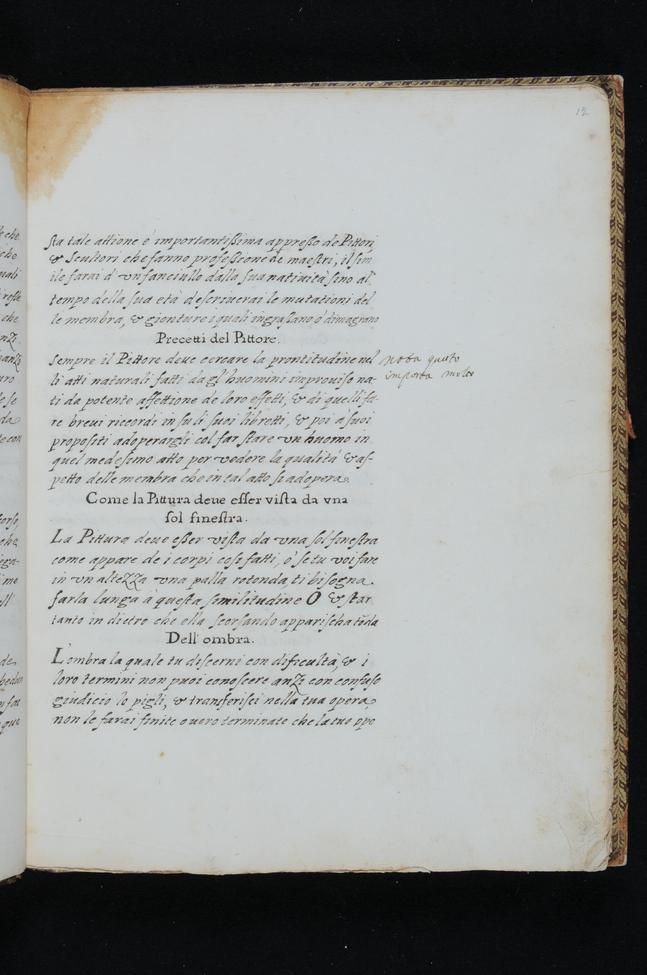 12
sta tale attione è importantissima appresso de Pittori,
& Scultori che fanno professione de maestri; il sim
ile farai d'un fanciullo dalla sua natività sino al
tempo della sua età descriverai le mutationi del
le membra, & gionture i quali ingrassano, ò dimagrano
Precetti del Pittore.
Sempre il Pittore deve cercare la prontitudine nel
li atti naturali fatti dagl'huomini improviso na-
ti da potente affettione de loro effetti, & di quelli fa-
re brevi riccordi in su li suoi libretti, & poi à suoi
propositi adoperargli col far stare un huomo in
quel medesimo atto per vedere la qualità & as-
petto delle membra che in tal atto si adopera.
nota questo
importa molto
Come la Pittura deue esser vista da vna
sol finestra.
La Pittura deve esser vista da una sol finestra
come appare de i corpi così fatti, ò se tu voi fare
in un altezza una palla rotonda ti bisogna
farla lunga à questa similitudine O & star
tanto in dietro che ella scorsando apparischa tōda
Dell'ombra.
L'ombra la quale tu discerni con dificultà, & i
loro termini non puoi conoscere anzi con confuso
giudicio lo pigli, & transferisci nella tua opera,
non le farai finite overo terminate che la tuo ppo